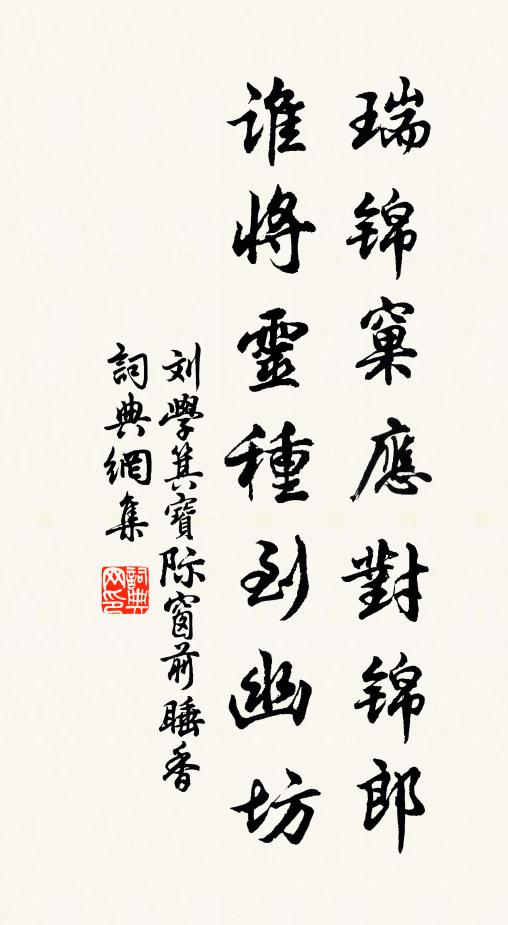 瑞锦窠應對锦郎
谁將靈種到幽坊
刘學箕寶际窗前睡香
詞典網集
詞典網印